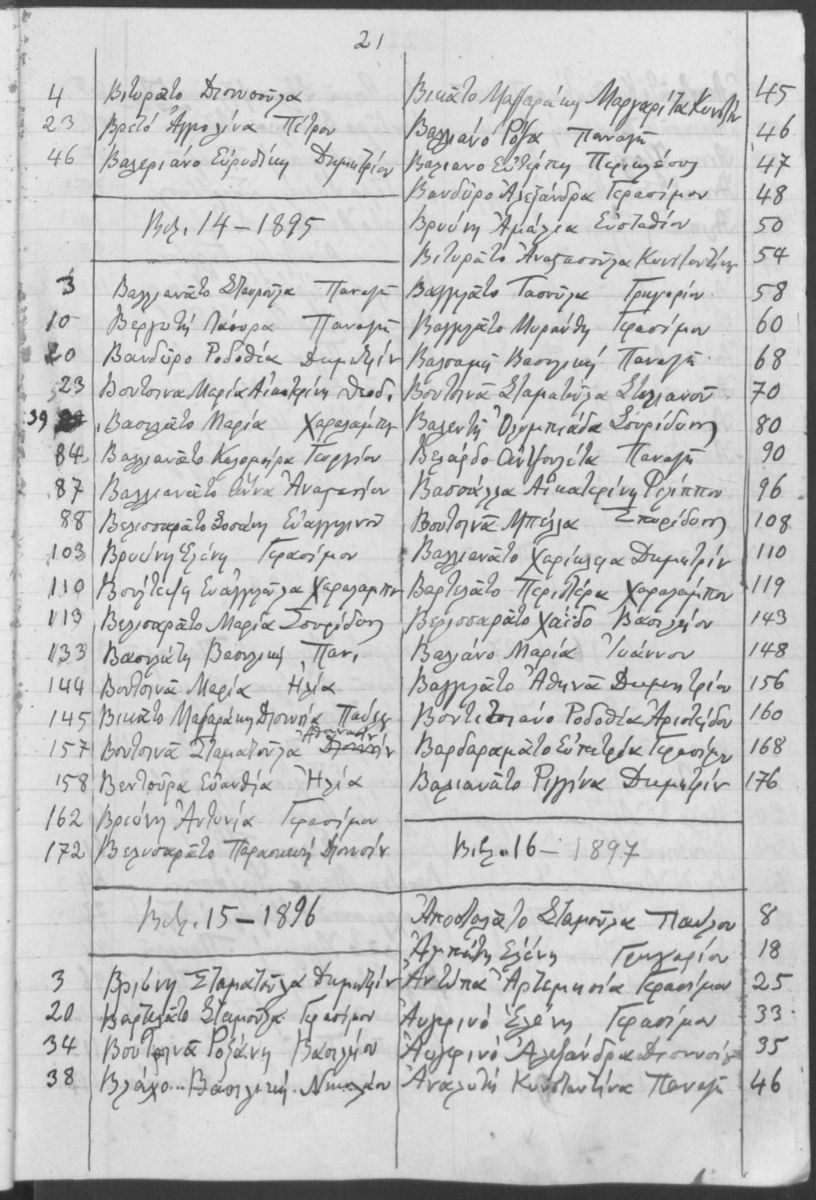 21
4 Βιτυρᾶτο Διονυσούλα
23 Βρετό Ἀγγολίνα Πέτρου
46 Βαλεριάνο Εὐρυδίκη Δημητρίου
Βιβ. 14 – 1895
3 Βαλλιανᾶτο Σταμούλα Παναγῆ
10 Βεργωτή Λάουρα Παναγῆ
20 Βανδῶρο Ροδοθέα Δημητρίου
23 Βουτσινα Μαρία Αἰκατερίνη Θεοδ.
39 Βασιλᾶτο Μαρία Χαραλάμπη
84 Βαλλιανᾶτο Καλομοίρα Γεωργίου
87 Βαλλιανᾶτο Ἄννα Ἀναστασίου
88 Βελισσαρᾶτο Σοσάνη Εὐαγγελινοῦ
103 Βρυώνη Ἑλένη Γερασίμου
110 Εὐαγγελούλα Χαραλάμπη
113 Βελισαρᾶτο Μαρία Σπυρίδων
133 Βασιλάτη Βασιλική Παν.
144 Βουτσινᾶ Μαρία Ἠλία
145 Βικᾶτο Μαζαράκη Διονυσία Παύλου
157 Βουτσινᾶ Σταματούλα Ἀθανασίου
158 Βεντούρα Εὐανθία Ἠλία
162 Βριώνη Ἀντωνία Γερασίμου
172 Βελυσαρᾶτο Παρασκευή Διονυσίου
Βιβ. 15 – 1896
3 Βριώνη Σταματούλα Δημητρίου
20 Βαρτελᾶτο Σταμούλα Γερασίμου
34 Βουτσινᾶ Ροξάνη Βασιλείου
38 Βλάχο.. Βασιλική. Νικολάου
Βικᾶτο Μαζαράκη Μαργαρίτα Κωνστ/ν 45
Βαλλιάνο Ρόζα Παναγῆ 46
Βαλιανο Εὐτέρπη Περικλέους 47
Βανδῶρο Ἀλεξάνδρα Γερασίμου 48
Βρυώνη Ἀμαλία Εὐσταθίου 50
Βιτυρᾶτο Ἀναστασούλα Κωνσταντίνου 54
Βαγγελᾶτο Τασούλα Γρηγορίου 58
Βαγγελᾶτο Μυράνθη Γερασίμου 60
Βαλσαμῆ Βασιλική Παναγῆ 68
Βουτσινᾶ Σταματούλα Στυλιανοῦ 70
Βαλεντή Ὀλυμπιάδα Σπυρίδων 80
Βελάρδο Ἀντζουλέτα Παναγῆ 90
Βασσάλλα Αἰκατερίνη Φιλίππου 96
Βουτσινᾶ Μπέλλα Σπυρίδων 108
Βαλλιανᾶτο Χαρίκλεια Δημητρίου 110
Βαρτελᾶτο Περιστέρα Χαραλάμπου 119
Βελισσαρᾶτο Χάϊδο Βασιλείου 143
Βαλιάνο Μαρία Ἰωάννου 148
Βαγγελᾶτο Ἀθηνᾶ Δημητρίου 156
Ροδοθέα Ἀριστείδου 160
Βαρδαραμᾶτο Γερασίμου 168
Βαλιανᾶτο Ρεγγίνα Δημητρίου 176
Βιβ. 16 – 1897
Ἀποστολᾶτο Σταμούλα Παύλου 8
Ἑλένη Γρηγορίου 18
Ἀντύπα Ἀρτεμησία Γερασίμου 25
Αὐγερινό Ἑλένη Γερασίμου 33
Αὐγερινό Ἀλεξάνδρα Διονυσίου 35
Ἀναλυτή Κωνσταντίνα Παναγῆ 46